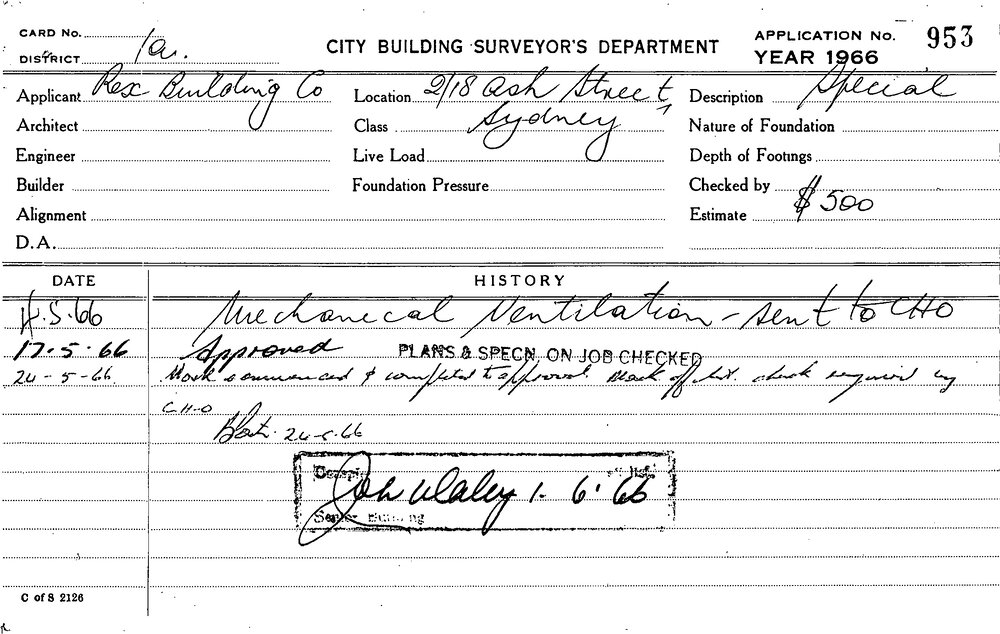 CARD No.
DISTRICT 1a.
CITY BUILDING SURVEYOR'S DEPARTMENT
APPLICATION No. 953
YEAR 1966
Applicant Rex Building Co
Location 2/18 Ash Street,
Description Special
Architect
Class Sydney
Nature of Foundation
Engineer
Live Load
Depth of Footings
Builder
Foundation Pressure
Checked by
Alignment
Estimate $500
D.A.
DATE
HISTORY
4.5.66 Mechanical Ventilation - sent to CHO
17.5.66 Approved PLANS & SPECN. ON JOB CHECKED
24-5-66. Work commenced & completed to approval. check required by
C.H-O
24-5-66
1. 6. 66
Senior Building
C of S 2126